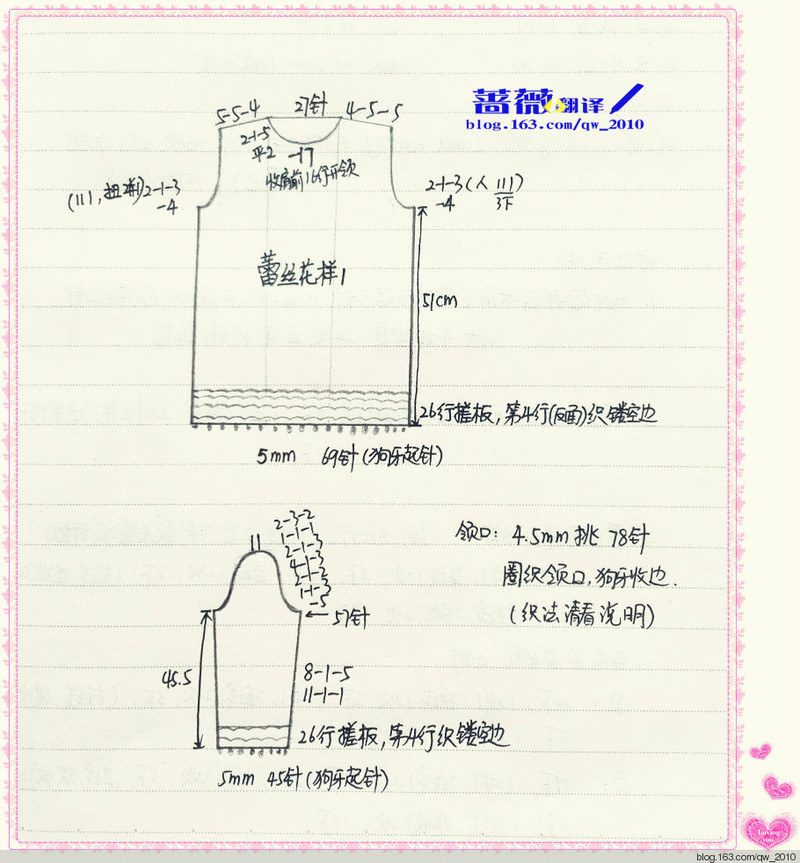 蔷薇翻译
blog.163.com/qw_2010
5-5-4
27针
4-5-5
2-1-5
平2
-17
收肩前16行开领
2-1-3
-4
2-1-3(人
-4
蕾丝花样1
51cm
26行搓板,第4行(反面)织镂空边
5mm 69针(狗牙起针)
11
2-3-2
1-1-1
2-1-3
4-1-3
2-1-2
1-1-3
-5
57针
45.5
8-1-5
11-1-1
26行搓板,第4行织镂空边
5mm 45针(狗牙起针)
领口: 4.5mm挑 78针
圈织领口,狗牙收边.
(织法请看说明)
Loving you
blog.163.com/qw_2010